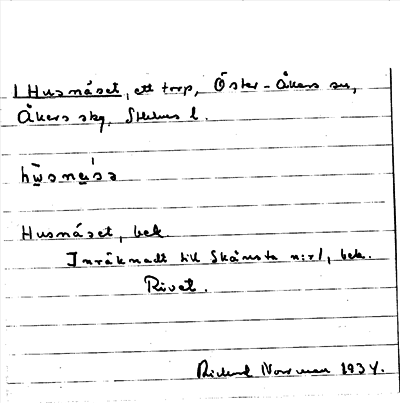 1 Husnäset, ett torp, Öster-Åkers sn,
Åkers skg, Sthlms l.
hu̠snesə
Husnäset, bek.
Inräknadt till Skånsta n:r 1, bek.
Rivet.
Rickard Norrman 1934.